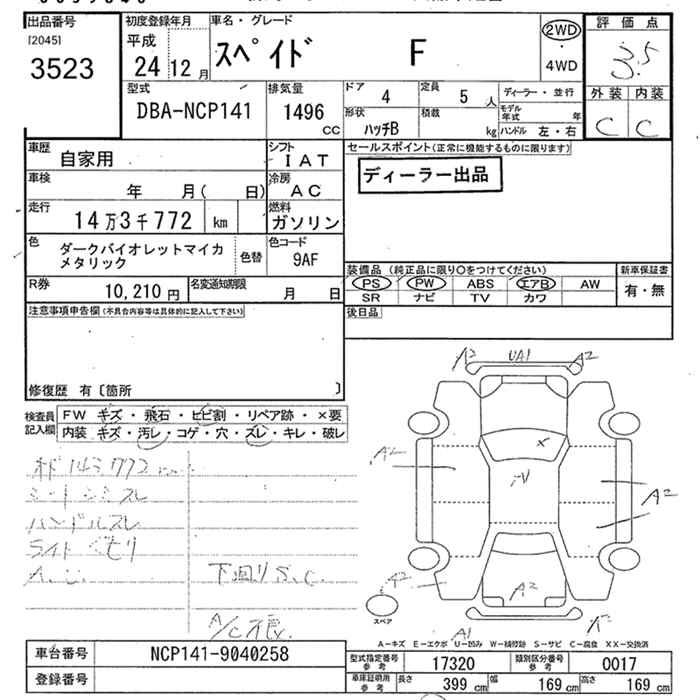 出品番号
[2045]
3523
初度登録年月
平成
24 12 月
車名・グレード
スペイド F
2WD
・
4WD
評価点
3.5
外装 内装
C C
型式
DBA-NCP141
排気量
1496
CC
ドア
4
定員
5 人
ディーラー・並行
形状
ハッチB
積載
kg
モデル年式 年
ハンドル 左・右
車歴
自家用
シフト
IAT
車検
年 月( 日)
冷房
AC
走行
14万3千772 km
燃料
ガソリン
色
ダークバイオレットマイカ
メタリック
色替
色コード
9AF
R券
10,210 円
名変通知期限
月 日
セールスポイント(正常に機能するものに限ります)
ディーラー出品
装備品 (純正品に限り○をつけてください)
新車保証書
PS PW ABS エアB AW
SR ナビ TV カワ
有・無
後日品
注意事項申告欄(不具合内容等は具体的に記入して下さい)
修復歴 有〔箇所 〕
検査員
記入欄
FW キズ・飛石・ヒビ割・リペア跡・×要
内装 キズ・汚レ・コゲ・穴・スレ・キレ・破レ
143772
シートシミスレ
ハンドルスレ
ライトくもり
A.U.
下回りS.C.
A/C不良
A2 UA1 A2
×
A2
A2
A2
A2
A1
スペア
A-キズ E-エクボ U-凹み W-補修跡 S-サビ C-腐食 XX-交換済
車台番号
NCP141-9040258
登録番号
型式指定番号
参考
17320
類別区分番号
参考
0017
車庫証明用
参考
長さ
399 cm
幅
169 cm
高さ
169 cm